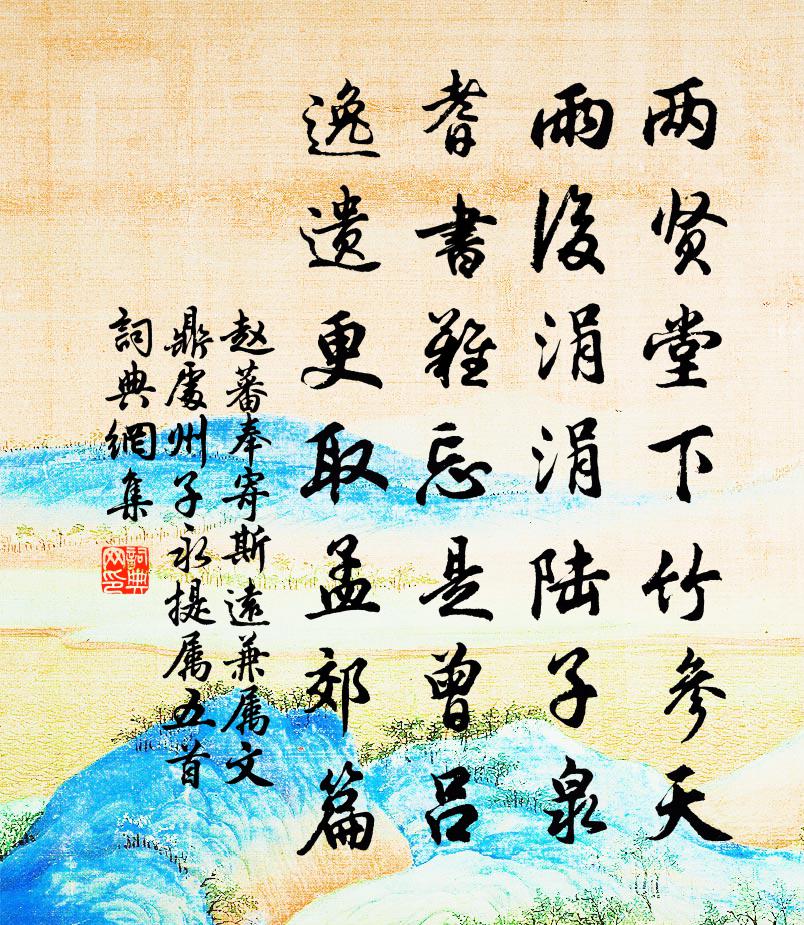 两贤堂下竹参天
雨後涓涓陆子泉
耆書难忘是曾吕
逸遗更取孟郊篇
赵蕃奉寄斯遠兼属文
鼎處州子永提属五首
詞典網集
詞典
网印